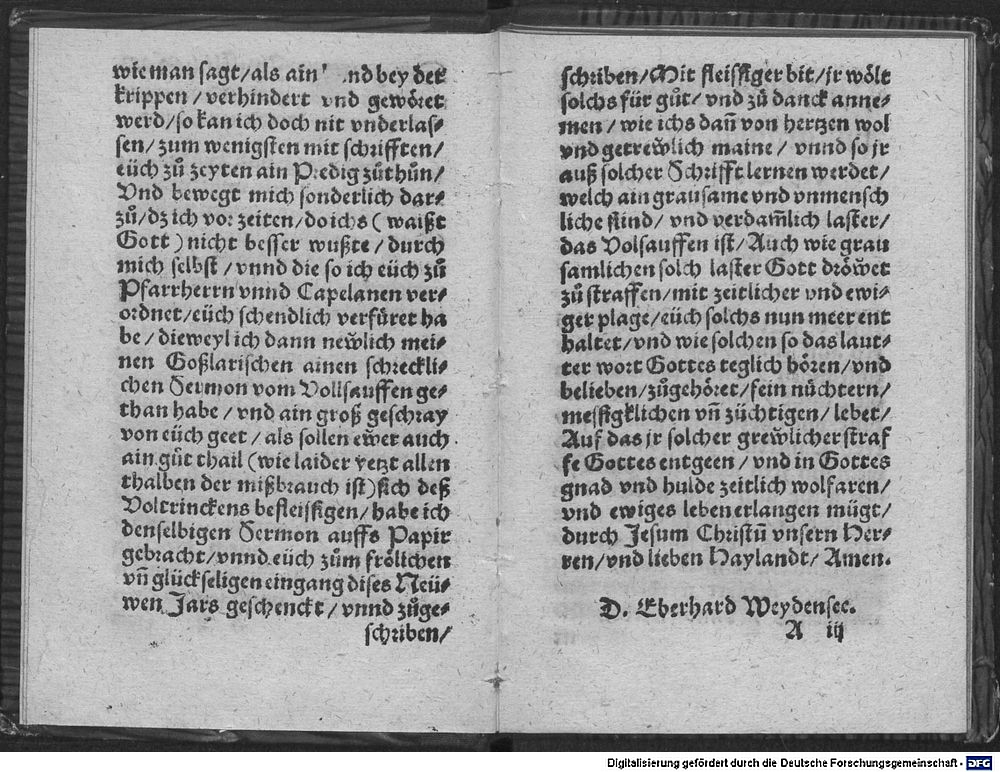 wie man sagt/als ain nd bey der
krippen/verhindert vnd gewöret
werd/so kan ich doch nit vnderlas⸗
sen/zum wenigsten mit schrifften/
eüch zů zeyten ain Predig zůthůn/
Vnd bewegt mich sonderlich dar⸗
zů/dz ich vor zeiten/do ichs (waißt
Gott) nicht besser wußte/durch
mich selbst/vnnd die so ich eüch zů
Pfarrherrn vnnd Capelanen ver⸗
ordnet/eüch schendlich verfüret ha
be/dieweyl ich dann newlich mei⸗
nen Goßlarischen ainen schreckli⸗
chen Sermon vom Vollsauffen ge⸗
than habe/vnd ain groß geschray
von eüch geet/als sollen ewer auch
ain gůt thail (wie laider yetzt allen
thalben der mißbrauch ist) sich deß
Voltrinckens befleissigen/habe ich
denselbigen Sermon auffs Papir
gebracht/vnnd eüch zům frölichen
vñ glückseligen eingang dises Neü⸗
wen Jars geschenckt/vnnd zůge⸗
schriben/
schriben/Mit fleissiger bit/jr wölt
solchs für gůt/vnd zů danck anne⸗
men/wie ichs dañ von hertzen wol
vnd getrewlich maine/vnnd so jr
auß solcher Schrifft lernen werdet/
welch ain grausame vnd vnmensch
liche sünd/vnd verdam̃lich laster/
das Volsauffen ist/Auch wie grau
samlichen solch laster Gott dröwet
zů straffen/mit zeitlicher vnd ewi⸗
ger plage/eüch solchs nun meer ent
haltet/vnd wie solchen so das laut⸗
ter wort Gottes teglich hören/vnd
belieben/zůgehöret/fein nüchtern/
messigklichen vñ züchtigen/lebet/
Auf das jr solcher grewlicher straf
fe Gottes entgeen/vnd in Gottes
gnad vnd hulde zeitlich wolfaren/
vnd ewiges leben erlangen mügt/
durch Jesum Christũ vnsern Her⸗
ren/vnd lieben Haylandt/Amen.
D. Eberhard Weydensee.
A iij
Digitalisierung gefördert durch die Deutsche Forschungsgemeinschaft - DFG